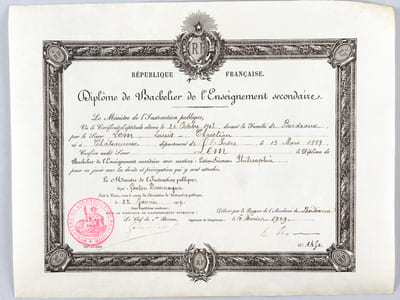 RF
RÉPUBLIQUE FRANÇAISE.
Diplôme de Bachelier de l'Enseignement secondaire.
Le Ministre de l'Instruction publique,
Vu le Certificat d'aptitude obtenu le 24 Octobre devant la Faculté de Bordeaux
par le Sieur Lem Louis Christian
né à Châteauroux département de l'Indre, le 13 Mars 1889
Confère audit Sieur Lem le Diplôme de
Bachelier de l'Enseignement secondaire avec mention: Latin-Sciences Philosophie
pour en jouir avec les droits et prérogatives qui y sont attachés.
Le Ministre de l'Instruction publique,
Signé: Gaston Doumergue
Fait à Paris, sous le sceau du Ministère de l'Instruction publique,
le 22 Janvier
POUR EXPÉDITION CONFORME:
Le Chef du Bureau,
Délivré par le Recteur de l'Académie de Bordeaux
le Février 1909
Signature de l'impétrant:
N°